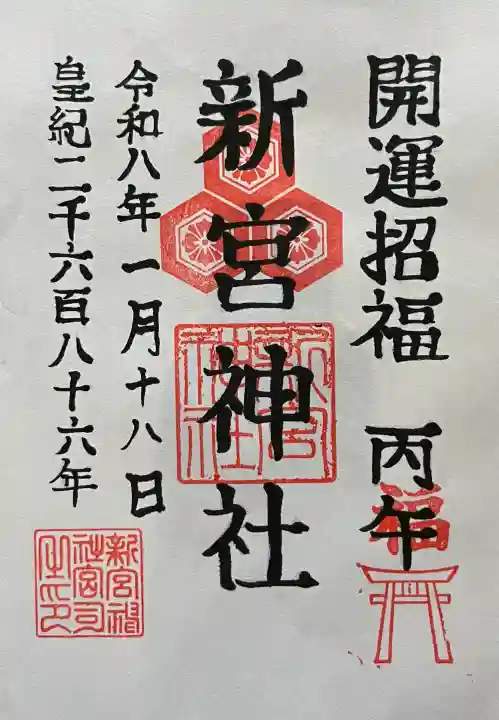 開運招福 丙午
福
新宮神社
新宮神社
令和八年一月十八日
皇紀二千六百八十六年
新宮神社宮司之印